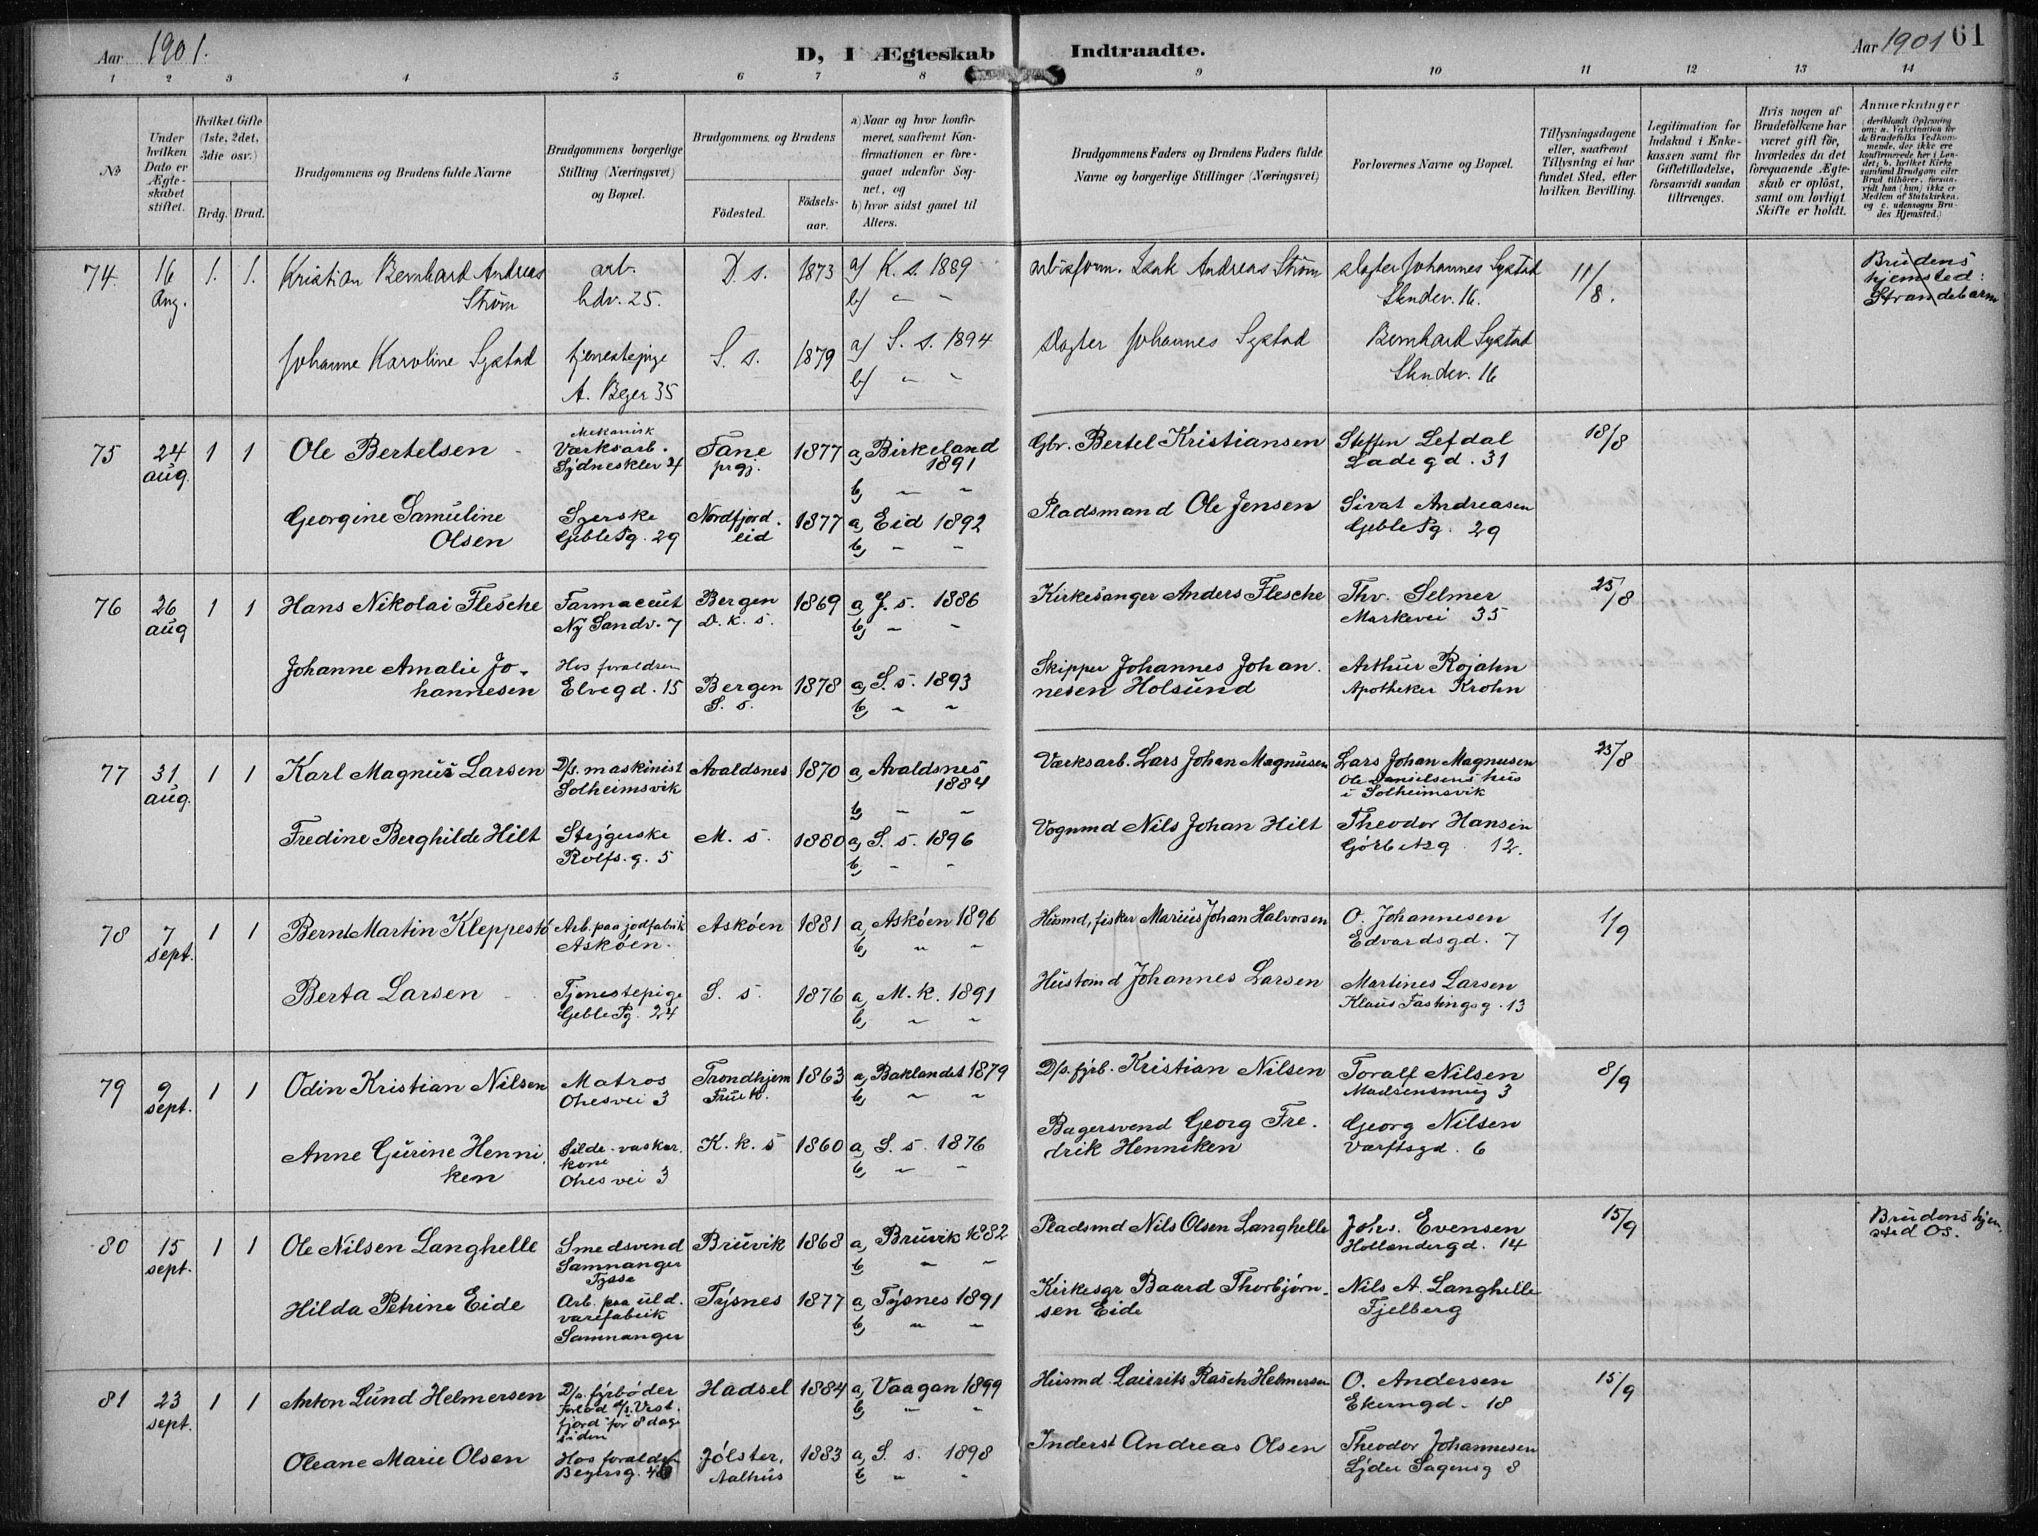 Aar 1901. D, I Ægteskab Indtraadte. Aar 1901 61
1 2 3 4 5 6 7 8 9 10 11 12 13 14
No
Under hvilken Dato er Ægteskabet stiftet.
Hvilket Gifte (1ste, 2det, 3die osv.)
Brdg. Brud.
Brudgommens og Brudens fulde Navne
Brudgommens borgerlige Stilling (Næringsvei) og Bopæl.
Brudgommens og Brudens
Födested. Födselsaar.
a) Naar og hvor konfirmeret, saafremt Konfirmationen er foregaaet udenfor Sognet, og
b) hvor sidst gaaet til Alters.
Brudgommens Faders og Brudens Faders fulde Navne og borgerlige Stillinger (Næringsvei)
Forlovernes Navne og Bopæl.
Tillysningsdagene eller, saafremt Tillysning ei har fundet Sted, efter hvilken Bevilling.
Legitimation for Indskud i Enkekassen samt for Giftetilladelse, forsaavidt saadan tiltrænges.
Hvis nogen af Brudefolkene har været gift før, hvorledes da det foregaaende Ægteskab er oplöst, samt om lovligt Skifte er holdt.
Anmærkninger
74. 16 Aug. 1. 1. Kristian Bernhard Andreas Strøm
arb. Ldv. 25. D. s. 1873 a) K. s. 1889
b) " "
arbsform. Isak Andreas Strøm
slagter Johannes Systad
Skudev. 16.
11/8.
Brudens hjemsted: Strandebarm
Johanne Karoline Systad
tjenestepige A. Beyer 35 S. s. 1879 a) S. s. 1894
b) " "
slagter Johannes Systad
Bernhard Systad
Skudev. 16
75 24 aug. 1 1 Ole Bertelsen
Mekanisk Værksarb. Sydneskler 24 Fane prgj. 1877 a, Birkeland 1891
b, " "
Gbr. Bertel Kristiansen
Steffen Lefdal
Ladegd. 31
18/8
Georgine Samuline Olsen
Syerske Geble Pg. 29 Nordfjordeid 1877 a, Eid 1892
b, " "
Pladsmand Ole Jensen
Sivat Andreasen
Geble Pg. 29
76 26 aug 1 1 Hans Nikolai Flesche
Farmaceut Ny Sandv. 7 Bergen D. k. s. 1869 a, J. s. 1886
b, " "
Kirkesanger Anders Flesche
Thv. Selmer
Markevei 35
25/8
Johanne Amalie Johannesen
Hos foraldren Elvegd. 15 Bergen S. s. 1878 a, S. s. 1893
b, " "
Skipper Johannes Johannesen Holsund
Arthur Rojahn
Apotheker Krohn
77 31 aug. 1 1 Karl Magnus Larsen
D/s. maskinist Solheimsvik Avaldsnes 1870 a, Avaldsnes 1884
b, " "
Værksarb. Lars Johan Magnusen
Lars Johan Magnusen
Ole Danielsens hus
i Solheimsvik
25/8
Fredine Berghilde Hilt
Strygerske Rolfs. g. 5 M. s. 1880 a, S. s. 1896
b, " "
Vognmd Nils Johan Hilt
Theodor Hansen
Gørbitzg. 12.
78 7 sept. 1 1 Bernt Martin Kleppestø
Arb. paa jodfabrik Askøen. Askøen 1881 a, Askøen 1896
b, " "
Husmd, fisker Marius Johan Halvorsen
O. Johannesen
Edvardsgd. 7
1/9
Berta Larsen
Tjenestepige Geble Pg. 24 S. s. 1876 a, M. k. 1891
b, " "
Hustomd Johannes Larsen
Martines Larsen
Klaus Fastingsg. 13
79 9 sept. 1 1 Odin Kristian Nilsen
Matros Ohesvei 3 Trondhjem Frue k. 1863 a, Baklandet 1879
b, " "
D/s. fyrb. Kristian Nilsen
Toralf Nilsen
Madsensmug 3
8/9
Anne Gurine Henniken
Silde-vaskerkone Ohesvei 3 K. k. s 1860 a, S. s. 1876
b, " "
Bagersvend Georg Fredrik Henniken
Georg Nilsen
Værftsgd. 6
80 15 sept. 1 1 Ole Nilsen Langhelle
Smedsvend Samnanger Tysse Bruvik 1868 a, Bruvik 1882
b, " "
Pladsmd Nils Olsen Langhelle
Johs. Evensen
Hollendergd. 14
15/9
Brudens hjemsted Os.
Hilda Petrine Eide
Arb. paa uldvarefabrik Samnanger Tysnes 1877 a, Tysnes 1891
b, " "
Kirkesgr Baard Thorbjørnsen Eide
Nils A. Langhelle
Fjelberg
81 23 sept. 1 1 Anton Lund Helmersen
D/s. fyrbøder Forlod d/s. Vestfjord for 8 dage siden Hadsel 1884 a, Vaagan 1899
b, " "
Husmd. Laurits Rasch Helmersen
O. Andersen
Ekerngd. 18
15/9
Oleane Marie Olsen
Hos foraldre Beyersg. Jølster, Aalhus 1883 a, S. s. 1898
b, " "
Inderst Andreas Olsen
Theodor Johannesen
Lyder Sagensg 8